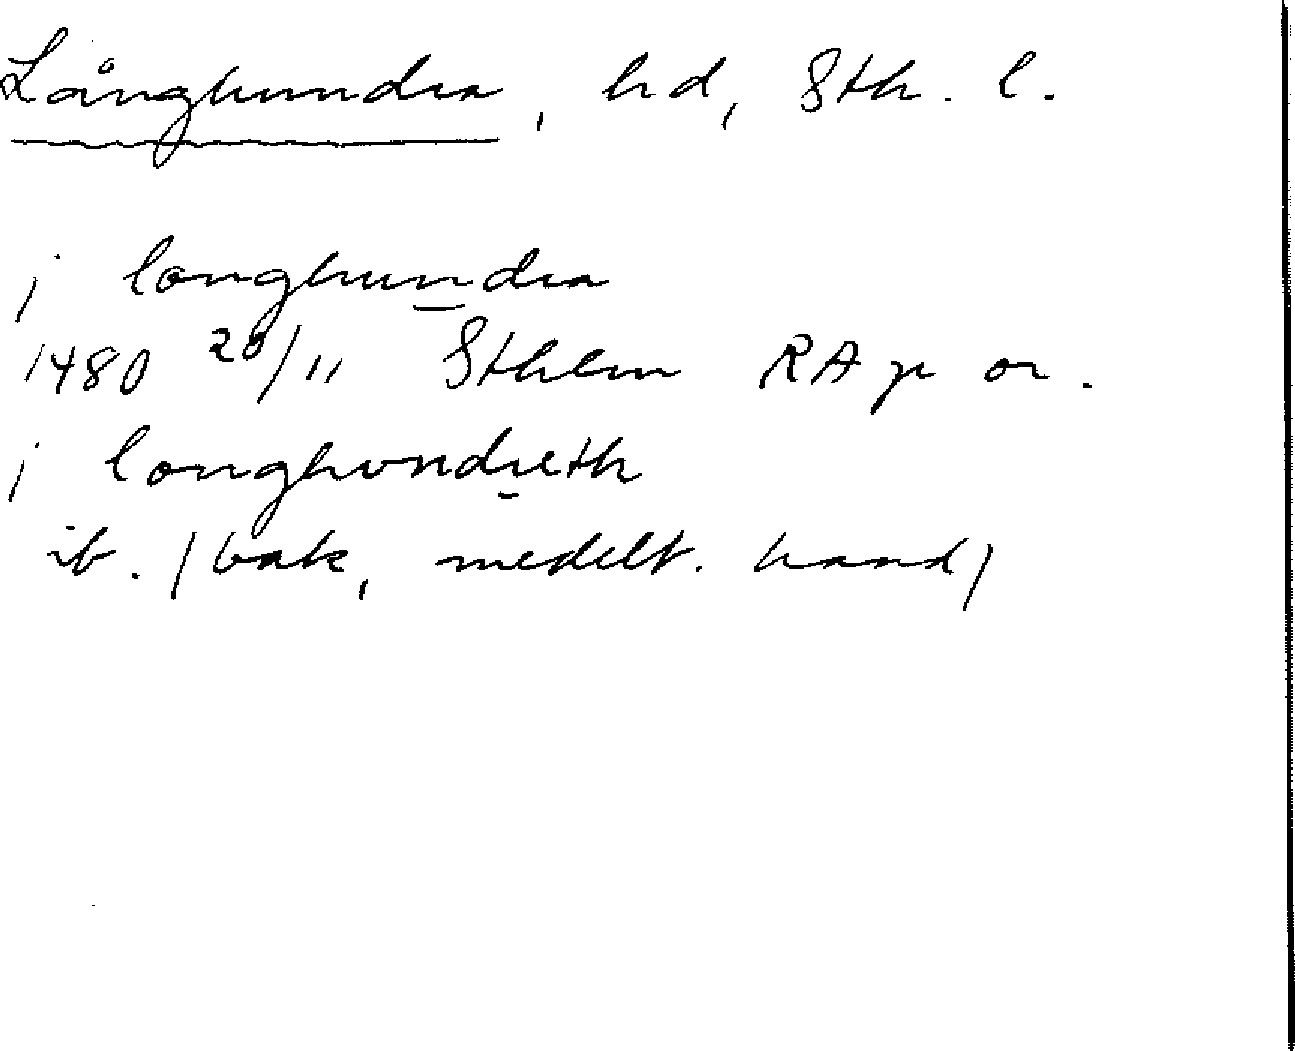 Långhundra, hd, Sth. l.
j longhundra
1480 20/11 Sthlm RA p or.
j longhvndreth
ib. (bak, medelt. hand)